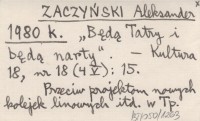 ZACZYŃSKI Aleksander
1980 k. „Będą Tatry i
będą narty" – Kultura
18, nr 18 (4 V): 15.
Przeciw projektom nowych
kolejek linowych itd. w Tp.